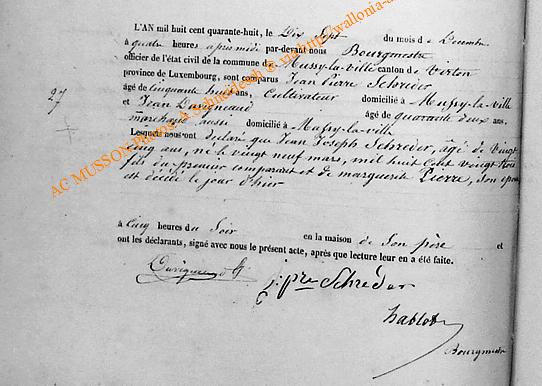 L'AN mil huit cent quarante-huit, le Dix Sept du mois de Décembre
à quatre heures après midi par-devant nous Bourgmestre
officier de l'état civil de la commune de Mussy-la-ville canton de Virton
province de Luxembourg, sont comparus Jean Pierre Schréder
âgé de Cinquante huit ans, Cultivateur domicilié à Mussy-la-ville
et Jean âgé de quarante deux ans,
marchand aussi domicilié à Mussy-la-ville
Lesquels nous ont déclaré que Jean Joseph Schréder, âgé de vingt
Cinq ans, né le vingt neuf mars, mil huit Cent vingt trois
fils du premier comparant et de marguerite Pierre, son épouse
est décédé le jour d'hier
27
à Cinq heures du Soir en la maison de Son père et
ont les déclarants, signé avec nous le présent acte, après que lecture leur en a été faite.
j. pre Schréder
hablot
Bourgmestre
AC MUSSON Photos A Schneidesch @ via http://wallonia-a